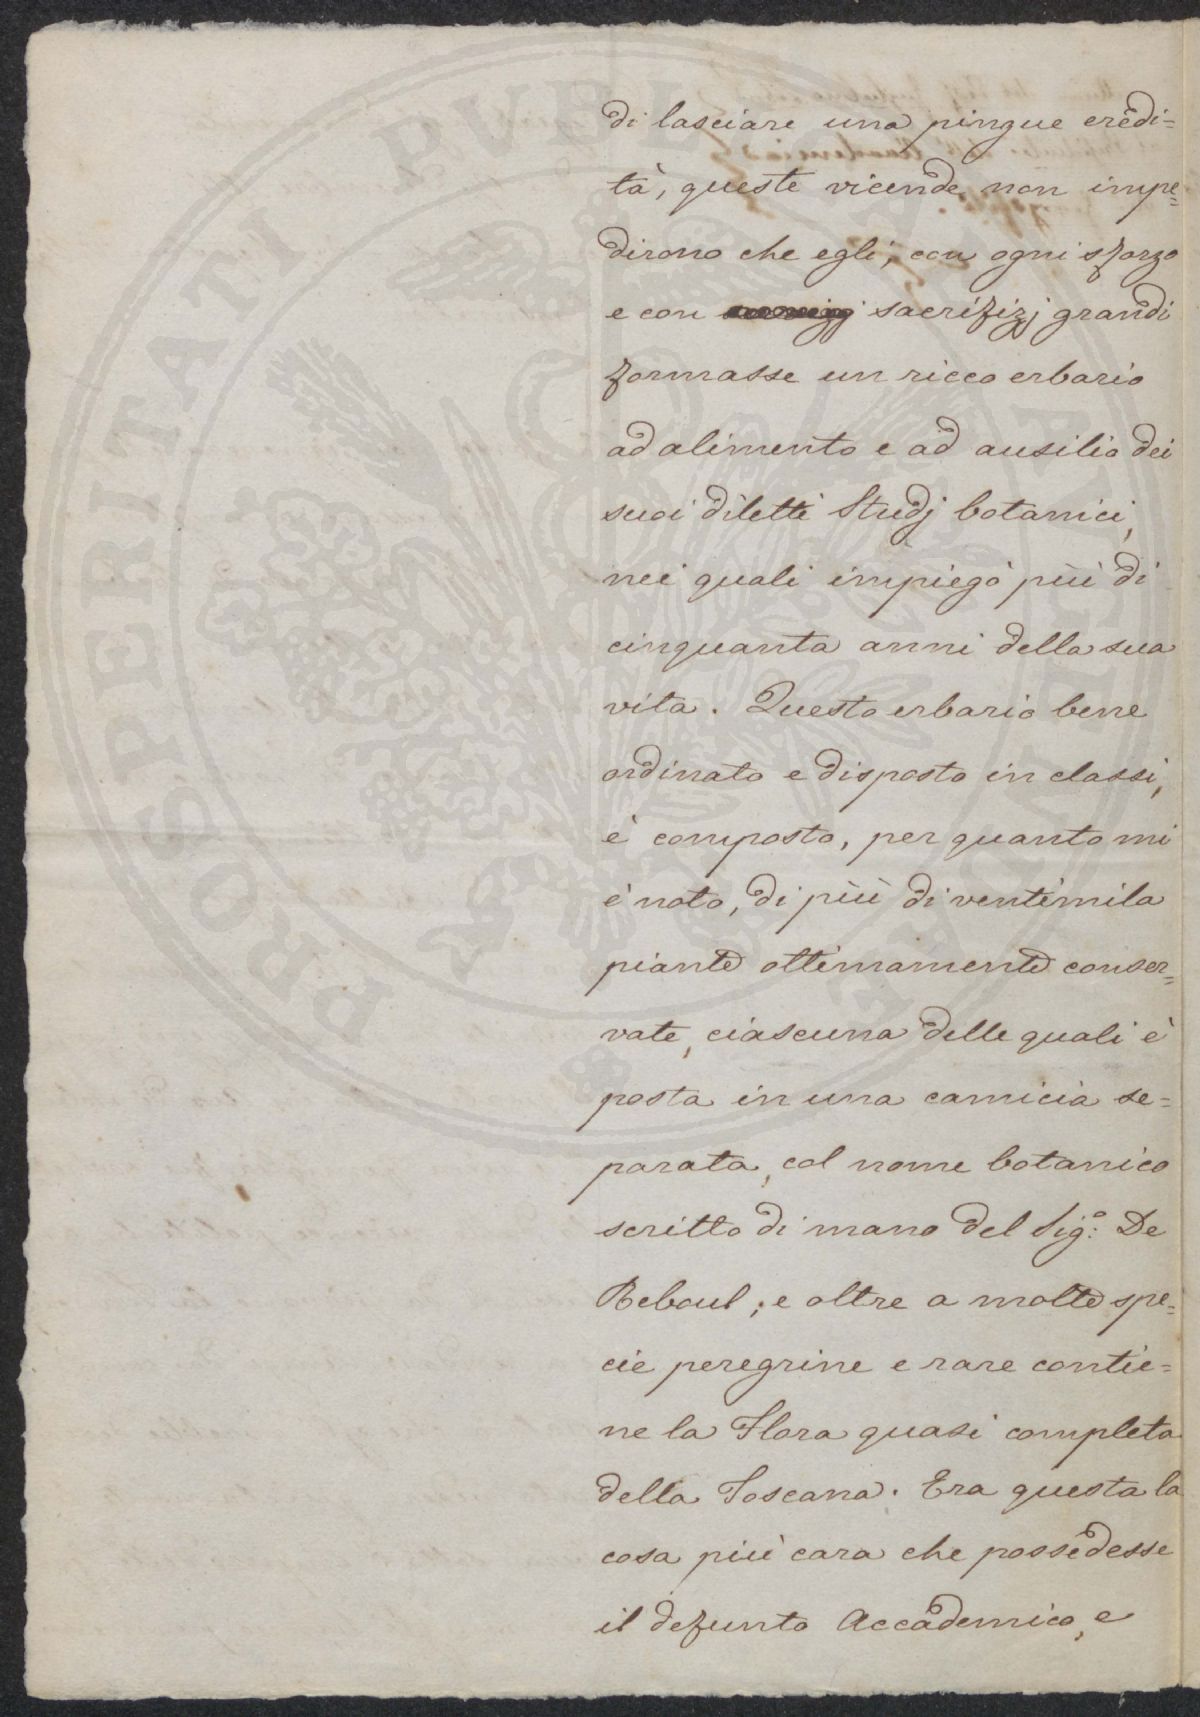 di lasciare una pingue eredi=
tà, queste vicende non impe=
dirono che egli, con ogni sforzo
e con sacrifizj grandi
formasse un ricco erbario
ad alimento e ad ausilio dei
suoi diletti Studj botanici,
nei quali impiegò più di
cinquanta anni della sua
vita. Questo erbario bene
ordinato e disposto in classi,
è composto, per quanto mi
è noto, di più di ventimila
piante ottimamente conser=
vate, ciascuna delle quali è
posta in una camicia se=
parata, col nome botanico
scritto di mano del Sigº: De
Reboul; e oltre a molte spe=
cie peregrine e rare contie=
ne la Flora quasi completa
della Toscana. Era questa la
cosa più cara che possedesse
il defunto Accademico, e
PROSPERITATI PUBLICAE AUGENDAE